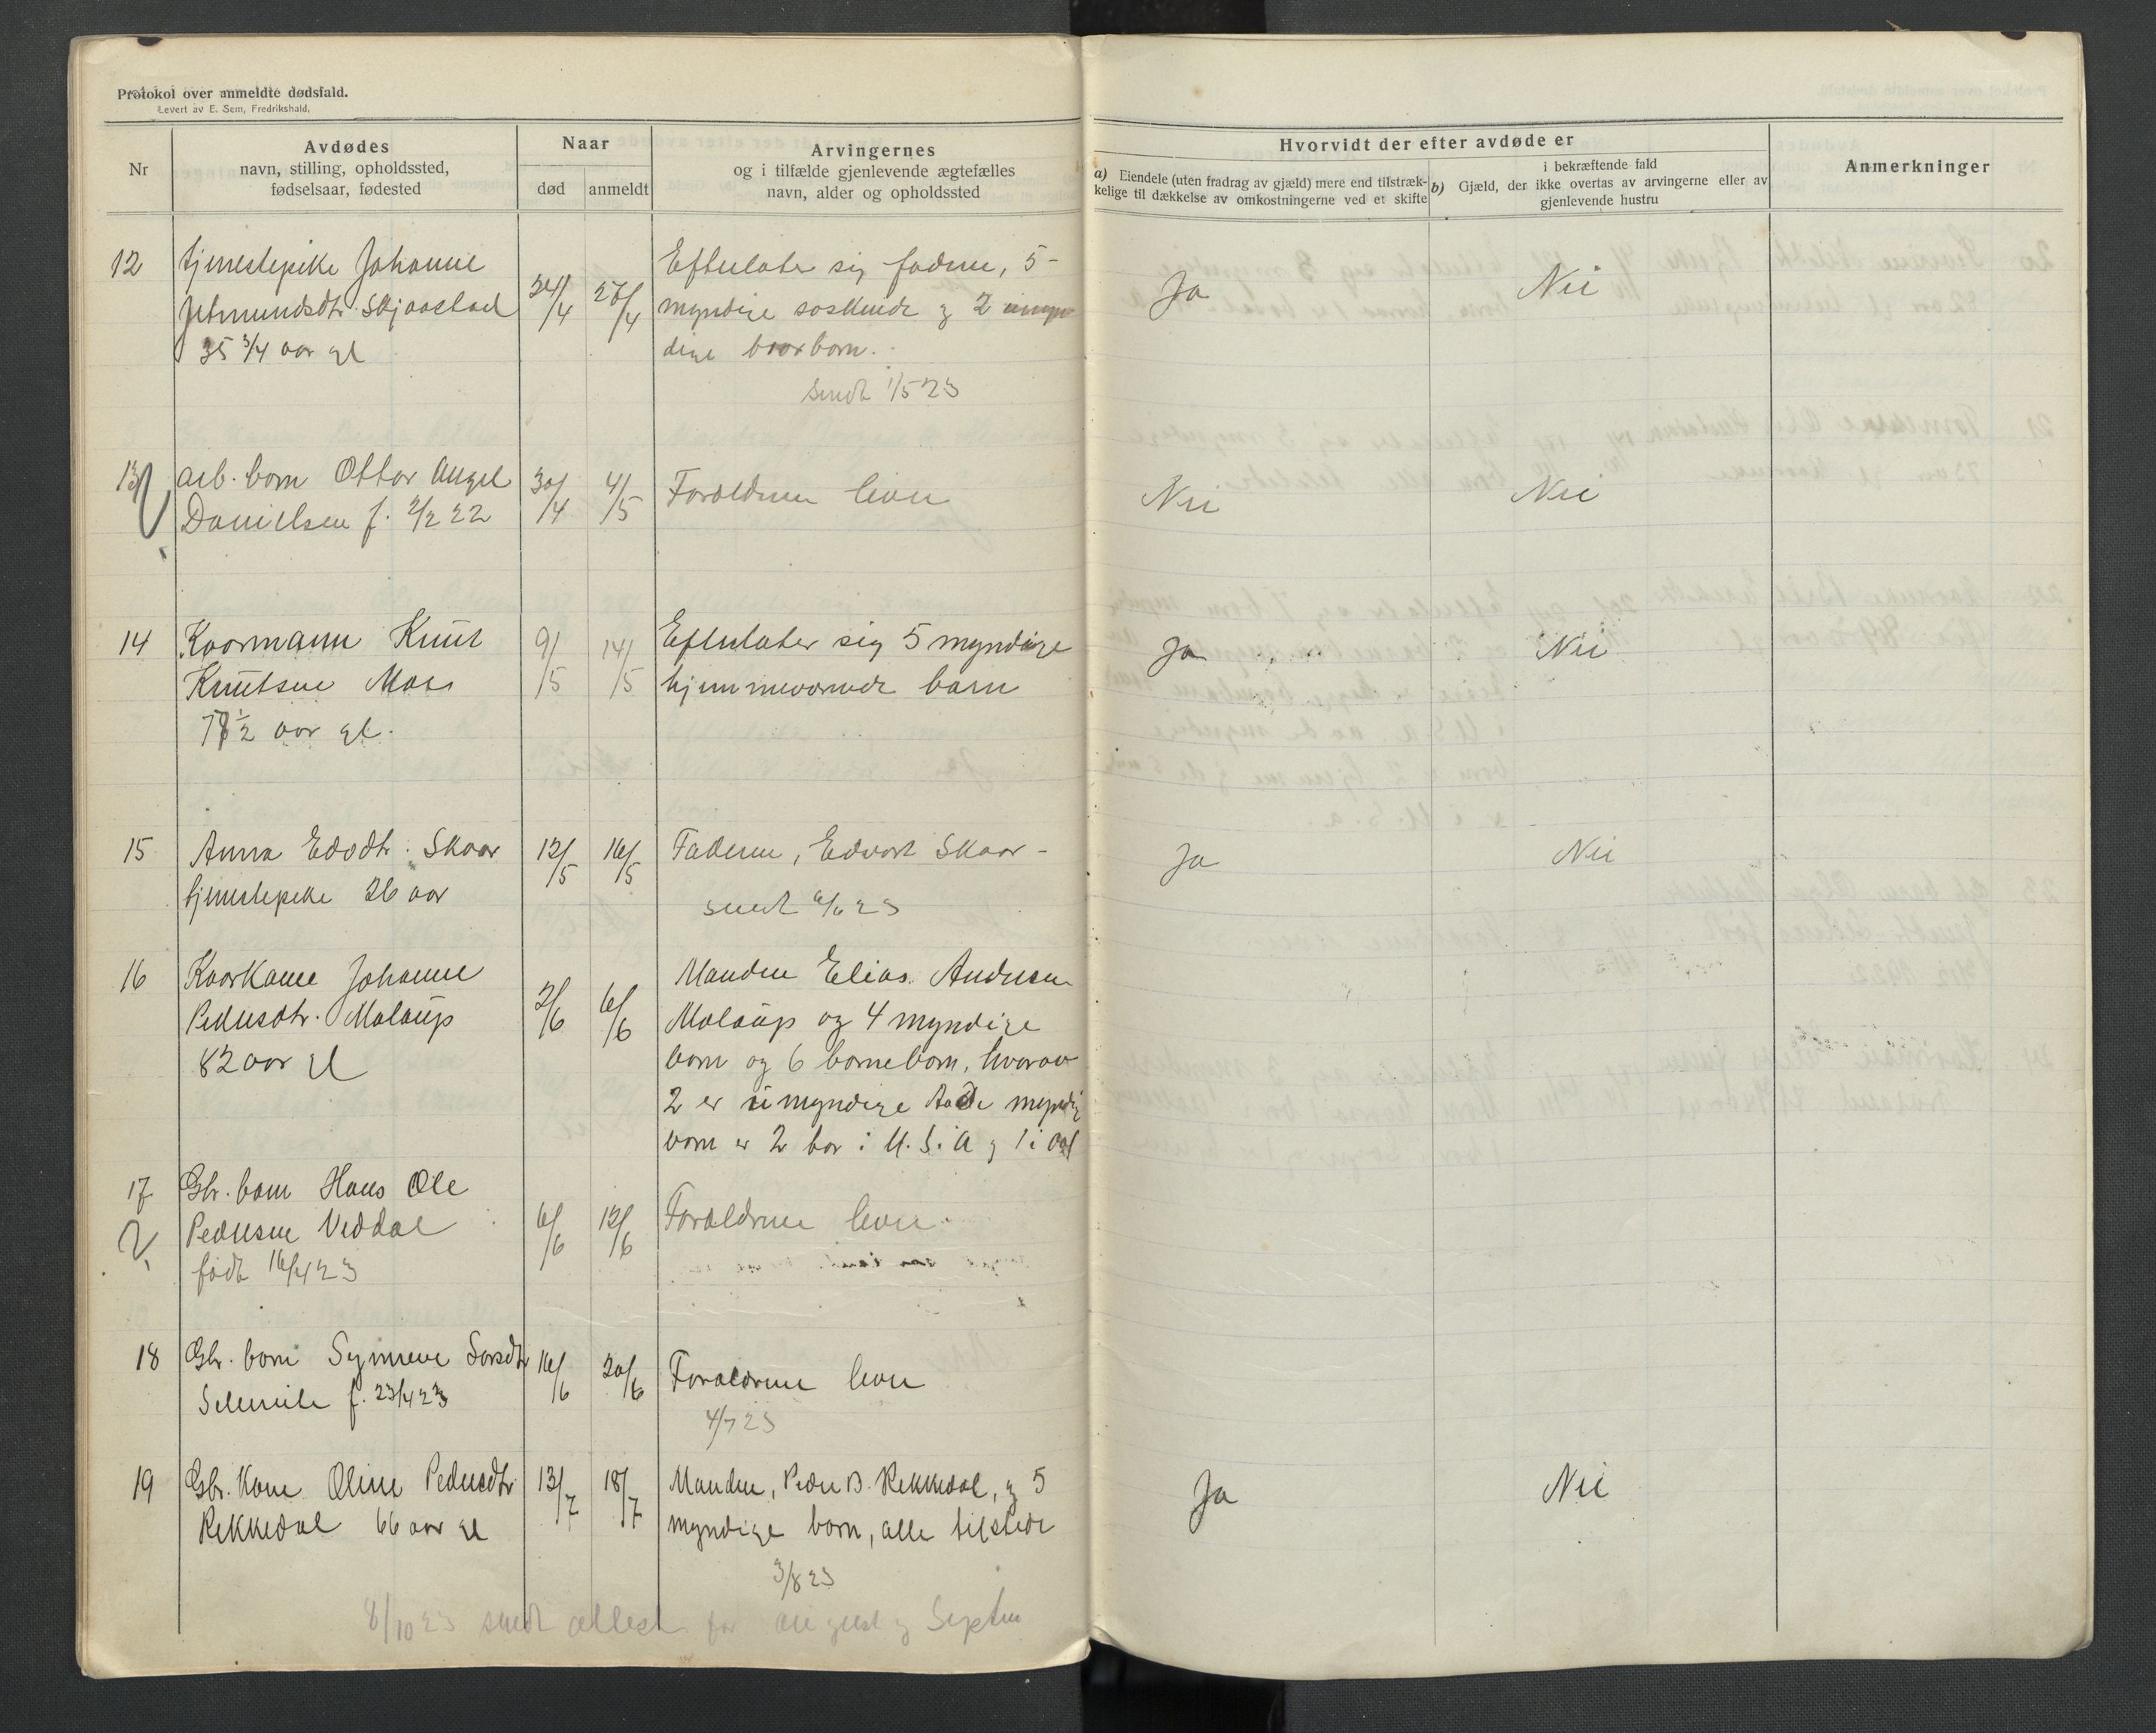 Protokol over anmeldte dødsfald.
Levert av E. Sem, Fredrikshald.
Nr
Avdødes
navn, stilling, opholdssted,
fødselsaar, fødested
Naar
død
anmeldt
Arvingernes
og i tilfælde gjenlevende ægtefælles
navn, alder og opholdssted
Hvorvidt der efter avdøde er
a) Eiendele (uten fradrag av gjæld) mere end tilstræk-
kelige til dækkelse av omkostningerne ved et skifte
i bekræftende fald
b) Gjæld, der ikke overtas av arvingerne eller av
gjenlevende hustru
Anmerkninger
12 tjenestepike Johanne
Jetmundsdtr. Skjaastad
35 3/4 aar gl
24/4 27/4
Efterlater sig faderen, 5
myndige søskende og 2 umyn
dige brorbørn.
sendt 1/5 23
Ja Nei
13 arb. barn Ottar Angel
Danielsen f. 2/2 22
30/4 4/5
Forældrene lever
Nei Nei
14 Kaarmann Knut
Knutsen Moss
78 1/2 aar gl.
9/5 14/5
Efterlater sig 5 myndige
hjemmeværende barn
Ja Nei
15 Anna Edvdtr. Skaar
tjenestepike 26 aar
12/5 16/5
Faderen, Edvart Skaar -
sendt 6/6 23
Ja Nei
16 Kaarkone Johanne
Pedersdtr. Molaup
82 aar gl
2/6 6/6
Manden Elias Andersen
Molaup og 4 myndige
børn og 6 barnebørn, hvorav
2 er umyndige Av de myndig
børn er 2 bor i U. S. A og 1 i
17 Gbr. barn Hans Ole
Pedersen Veddal
født 16/4 23
6/6 12/6
Forældrene lever
18 Gbr. barn Synneve Larsdtr
f. 23/4 23
16/6 20/6
Forældrene lever
4/7 23
19 Gbr. Kone Oline Pedersdtr
Rekkedal 66 aar gl
13/7 18/7
Manden, Peder B. Rekkedal, og 5
myndige børn, alle tilstede
3/8 23
Ja Nei
8/10 23 sendt attest for august og Septem